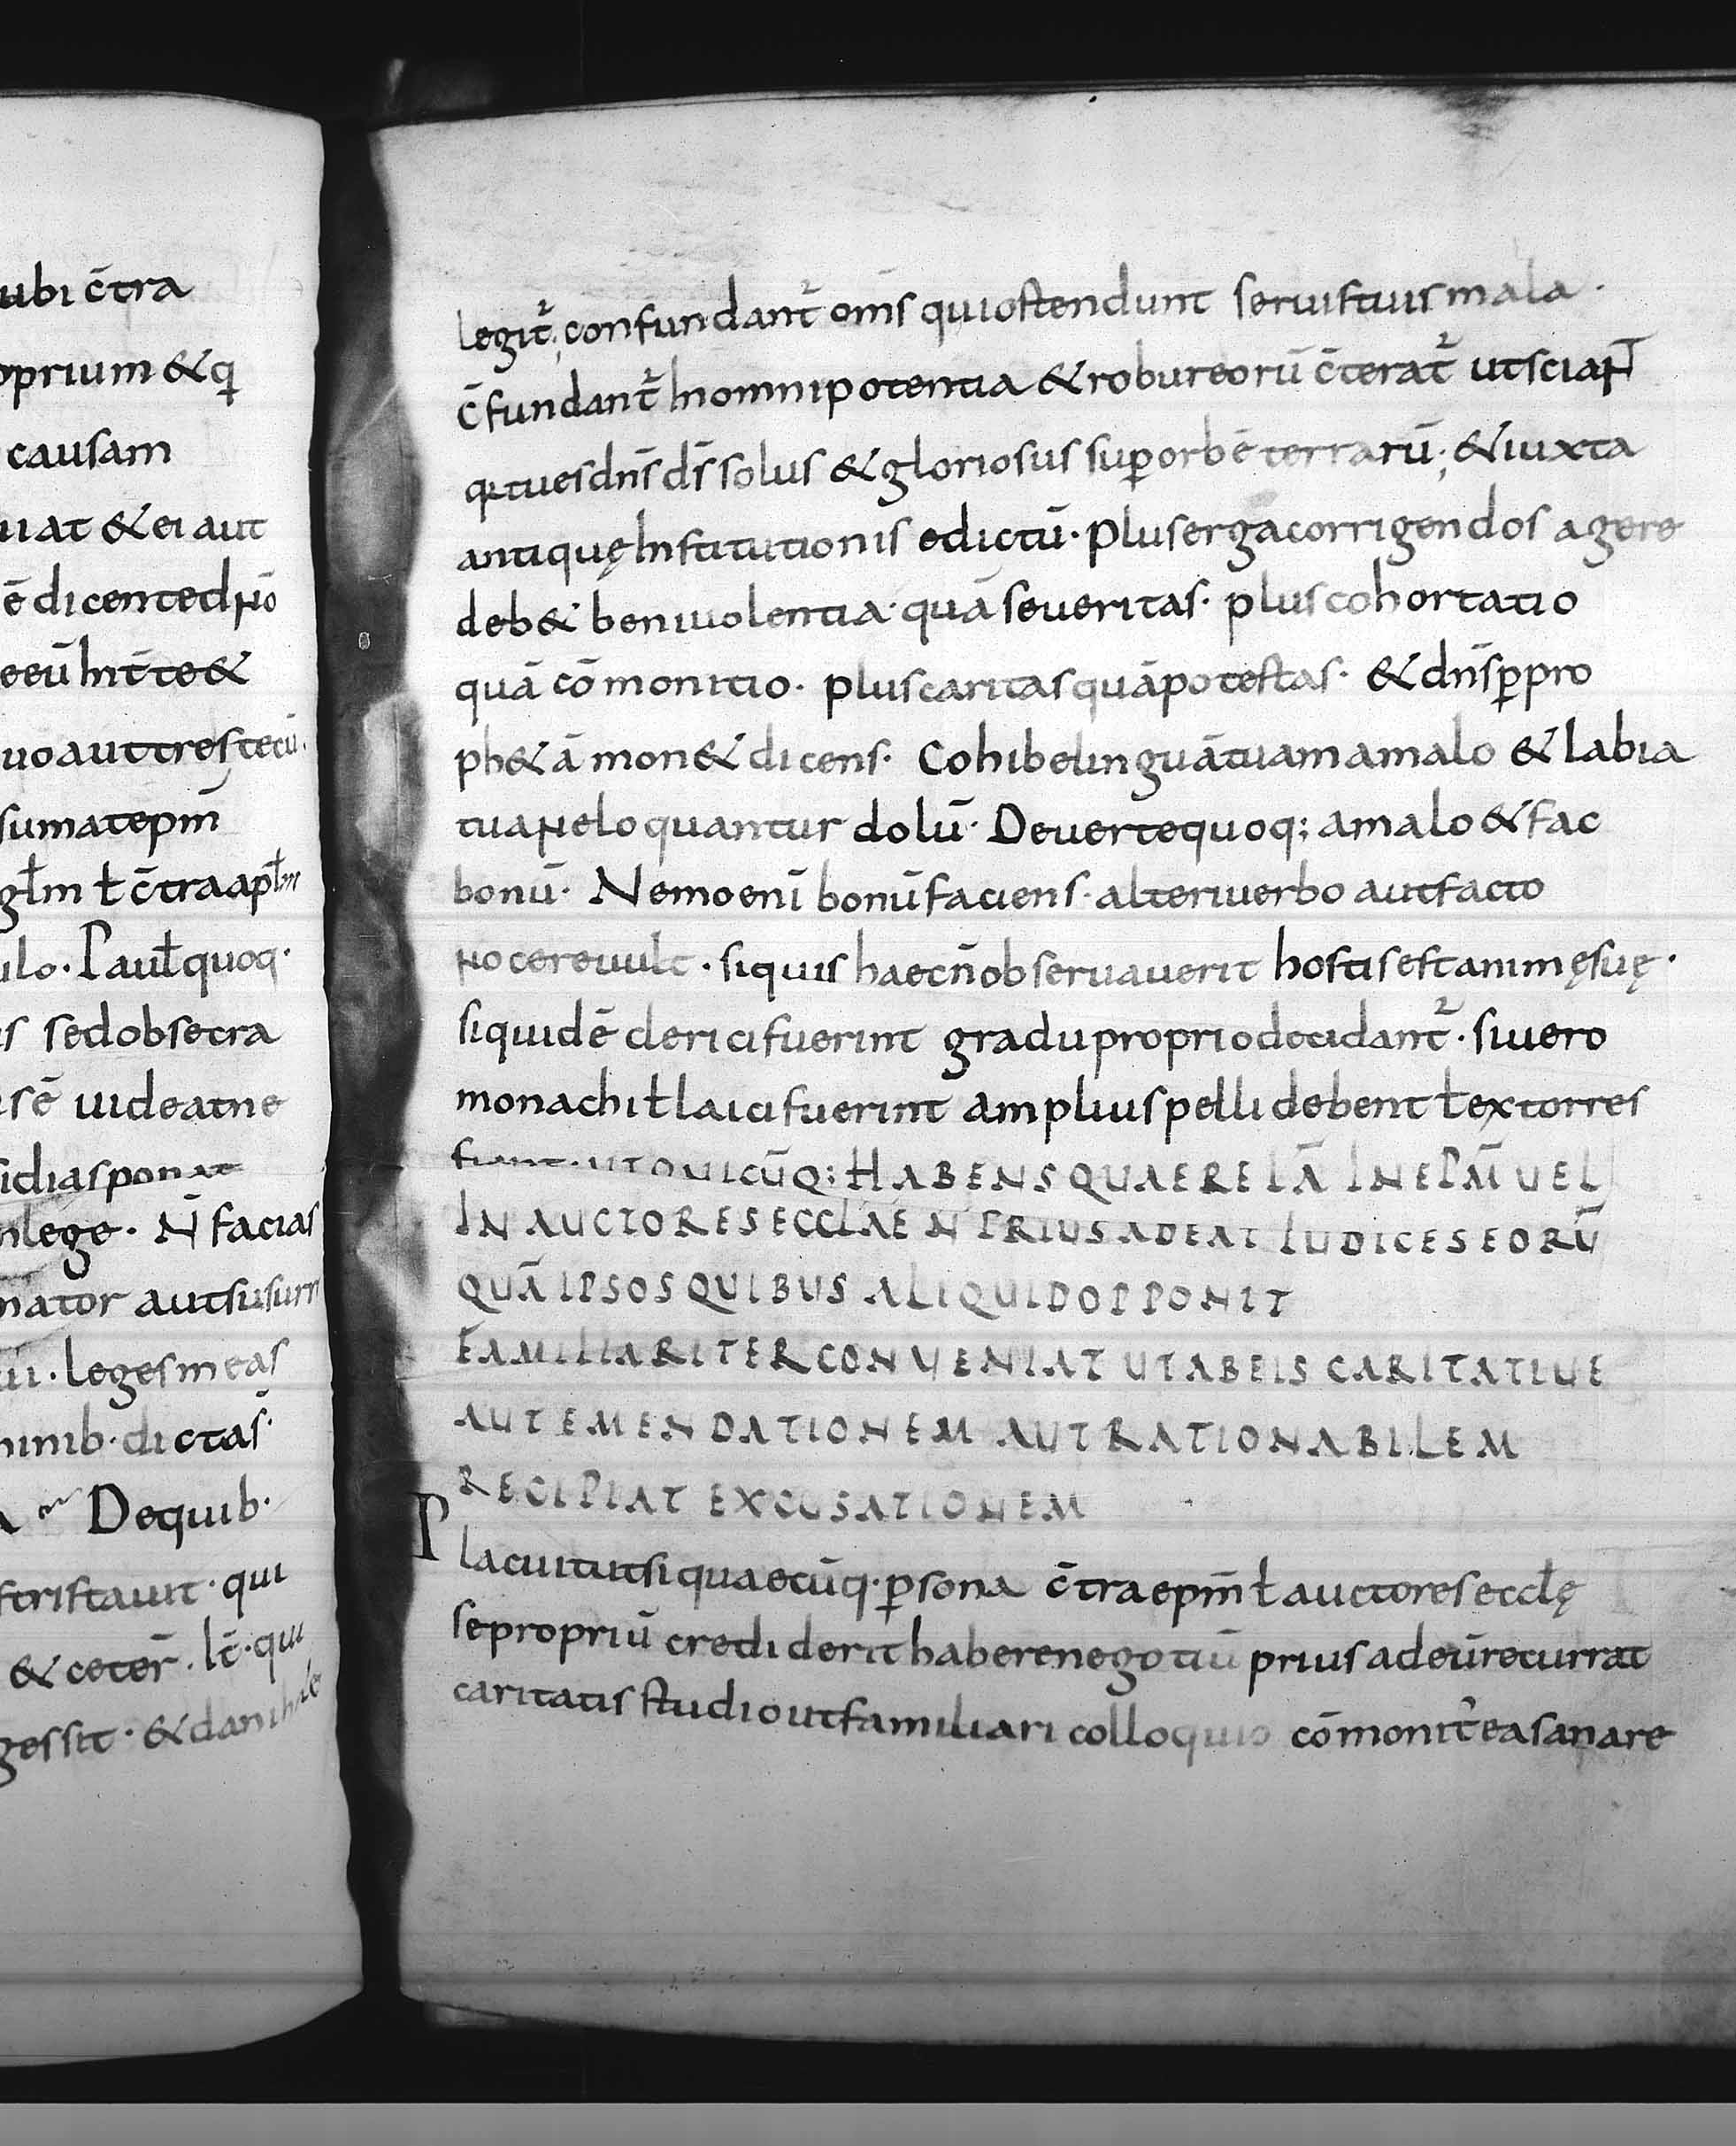 ubi c̄tra
oprium & q
causam
uiat & ei aut
ē dicente dn̄o
eeū in t̄ te &
uo aut tres tecū.
sumat ep̄m
głm ł c̄tra apłm
ulo. Pauł quoq·
is sed obsecra
sē uideat ne
sidias ponat
nlege. N̄ facias
nator aut susurr
ui. leges meas
minib· dictas
Dequib·
stristauit· qui
& ceter̄. It̄· qui
gessit· & da
legit̄; confundant̄ om̄s qui ostendunt seruis tuis mala.
c̄fundant̄ In omni potentia & robur eorū c̄terat̄ ut sciaN̄T
q tu es dn̄s ds̄ solus & gloriosus sup orbē terrarū; & iuxta
antiquę Institutionis edictū· plus erga corrigendos agere
deb& beniuolentia· quā seueritas· plus cohortatio
quā cōmonitio· plus caritas quā potestas· & dn̄s p pro
ph&ā mon& dicens· Cohibe linguā tuam a malo & labia
tua Ne loquantur dolū· Deuerte quoq; a malo & fac
bonū· Nemo enī bonū faciens· alteri uerbo aut facto
Nocere uult· si quis haec n̄ obseruauerit hostis est animę suę·
siquidē clerici fuerint gradu proprio decidant̄· si uero
monachi ł laici fuerint amplius pelli debent ł extorres
fiant· UT QUICŪQ; HABENS QUAERELĀ IN EPM̄ UEL
IN AUCTORES ECCLAE N̄ PRIUS ADEAT IUDICES EORŪ
QUĀ IPSOS QUIBUS ALIQUID OPPONIT
FAMILIARITER CONVENIAT UT AB EIS CARITATIUE
AUT EMENDATIONEM AUT RATIONABILEM
RECIPIAT EXCUSATIONEM
Placuit ut si quaecūq· psona c̄tra ep̄m ł auctores eccłę
se propriū crediderit habere negotiū prius ad eū recurrat
caritatis studio ut familiari colloquio cōmonit̄ ea sanare